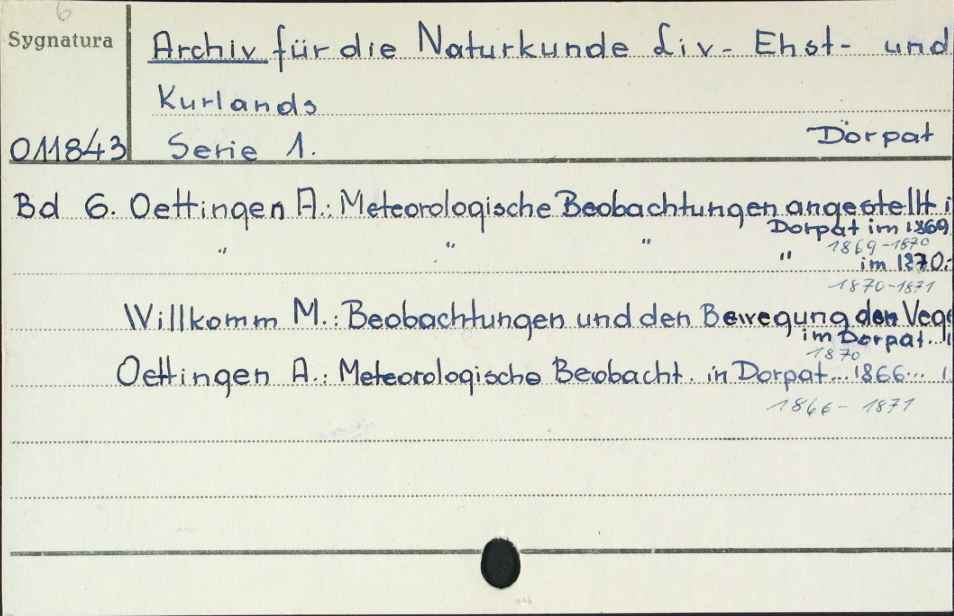 6
Sygnatura
Archiv für die Naturkunde Liv- Ehst- und
Kurlands
011843 Serie 1. Dorpat
Bd 6. Oettingen A.: Meteorologische Beobachtungen angestellt i
Dorpat im 1869
1869-1870
" " " " im 1870.
1870-1871
Willkomm M.: Beobachtungen und den Bewegung den Vege
im Dorpat..
1870
Oettingen A.: Meteorologische Beobacht. in Dorpat...1866...
1866- 1871